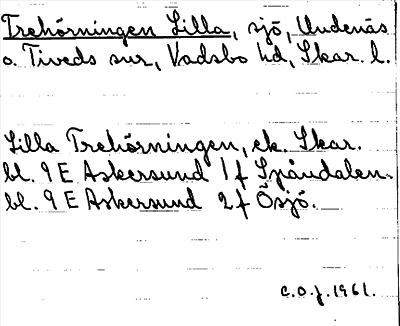 Trehörningen Lilla, sjö, Undenäs
o. Tiveds snr, Vadsbo hd, Skar. l.
Lilla Trehörningen, ek. Skar.
bl. 9 E Askersund 1 f Sjöudalen.
bl. 9 E Askersund 2 f Ösjö.
C.O.J. 1961.